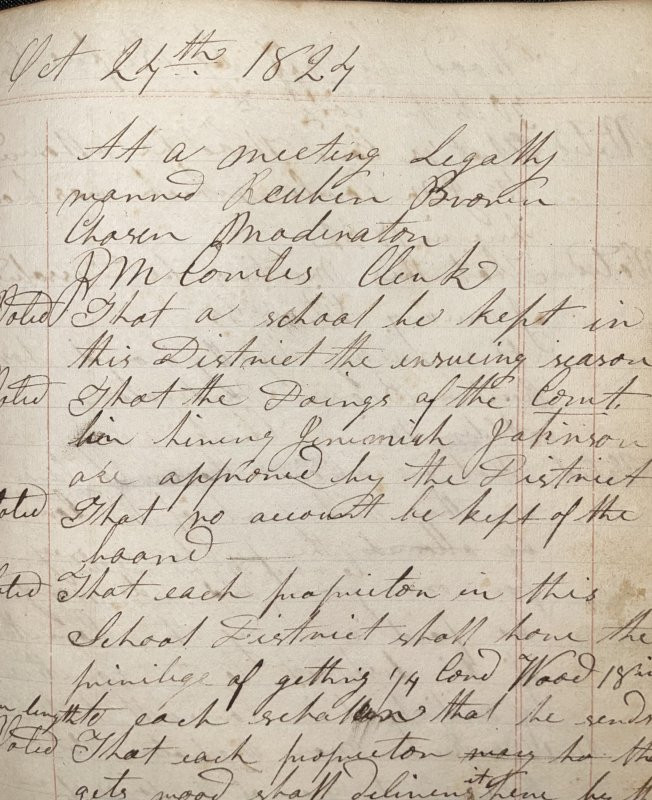 Oct 24th 1824
At a meeting Legally
warned Reuben Brown
Chosen Moderator
R M Cowles Clerk
Voted That a school be kept in
this District the ensueing season
Voted That the Doings of the Comt.
in hireing Jeremiah
are approved by the District
Voted That no account be kept of the
board
Voted That each proprietor in this
School District shall have the
privilege of getting 1/4 Cord Wood 18 in
in length to each scholar that he sends
Voted That each proprietor may ho tho
gets wood shall deliver it here by th